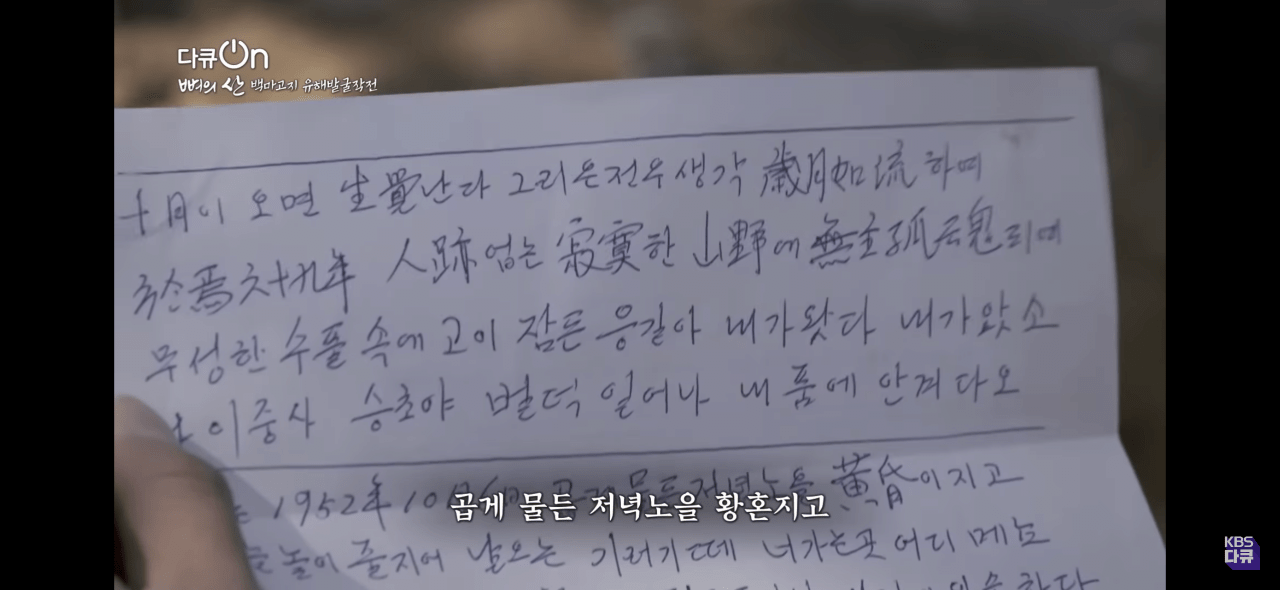 다큐On
뼈의 산 백마고지 유해발굴작전
十月이 오면 生覺난다 그리운전우생각 歲月如流하며
於焉六十九年 人跡업는 寂寞한 山野에 無主孤魂되며
무성한 수풀 속에 고이 잠든 응길아 내가왓다 내가왔소
이중사 승초야 벌덕 일어나 내 품에 안겨다오
1952年 10月 저녁노을 黃昏이지고
곱게 물든 저녁노을 황혼지고
높이 줄지어 날으는 기러기떼 너가는곳 어디메뇨
KBS
다큐